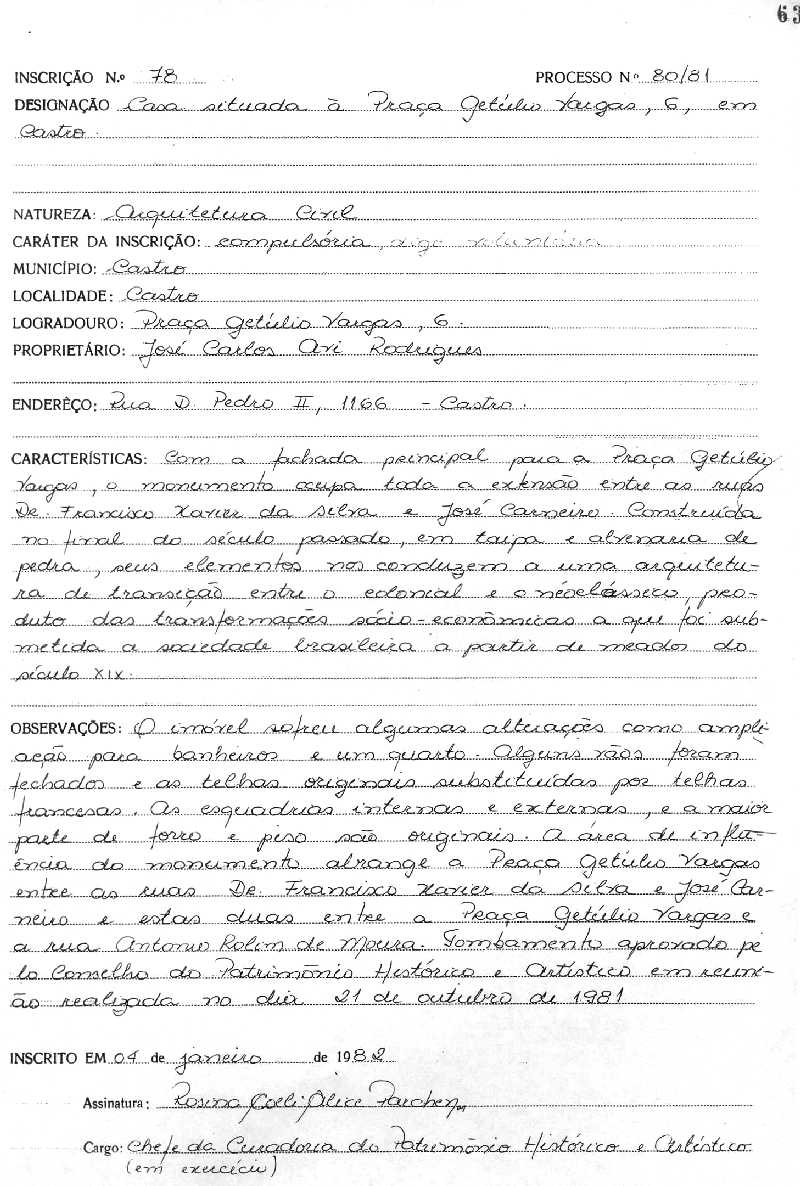 63
INSCRIÇÃO N.º 78 PROCESSO Nº 80/81
DESIGNAÇÃO Casa situada à Praça Getúlio Vargas, 6, em
Castro.
NATUREZA: Arquitetura Civil
CARÁTER DA INSCRIÇÃO: compulsória, digo voluntária
MUNICÍPIO: Castro
LOCALIDADE: Castro
LOGRADOURO: Praça Getúlio Vargas, 6.
PROPRIETÁRIO: José Carlos Ari Rodrigues
ENDERÊÇO: Rua D. Pedro II, 1166 - Castro.
CARACTERÍSTICAS: Com a fachada principal para a Praça Getúlio
Vargas, o monumento ocupa toda a extensão entre as ruas
Dr. Francisco Xavier da Silva e José Carneiro. Construída
no final do século passado, em taipa e alvenaria de
pedra, seus elementos nos conduzem a uma arquitetu-
ra de transição entre o colonial e o neoclássico, pro-
duto das transformações sócio-econômicas a que foi sub-
metida a sociedade brasileira a partir de meados do
século XIX.
OBSERVAÇÕES: O imóvel sofreu algumas alterações como ampli-
ação para banheiros e um quarto. Alguns vãos foram
fechados e as telhas originais substituídas por telhas
francesas. As esquadrias internas e externas, e a maior
parte de forro e piso são originais. A área de influ-
ência do monumento abrange a Praça Getúlio Vargas
entre as ruas Dr. Francisco Xavier da Silva e José Car-
neiro e estas duas entre a Praça Getúlio Vargas e
a rua Antonio Rolim de Moura. Tombamento aprovado pe
lo Conselho do Patrimônio Histórico e Artístico em reuni-
ão realizada no dia 21 de outubro de 1981
INSCRITO EM 04 de janeiro de 1982
Assinatura: Rosina Coeli Alice Parchen
Cargo: Chefe da Curadoria do Patrimônio Histórico e Artístico
(em exercício)